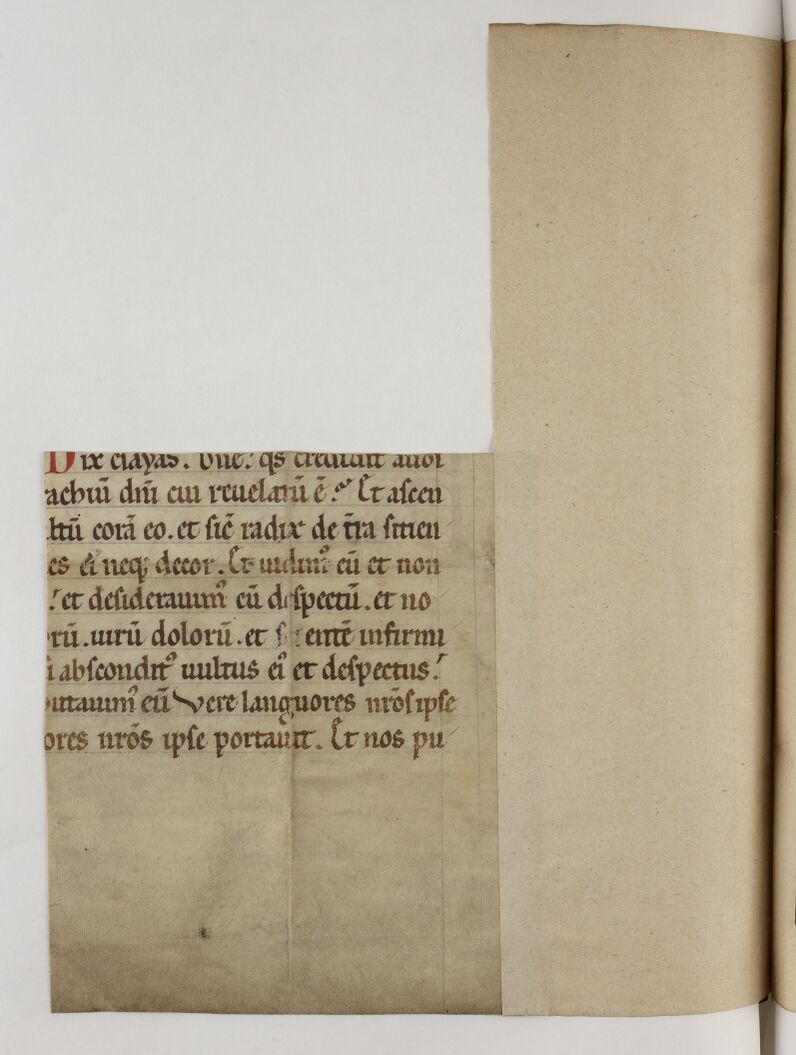 Dix esayas. Dñe.' qs credidit audi
rachiũ dñi cui reuelatũ ẽ.' Et ascen
ltũ corã eo. et sic̃ radix de t̃ra sitien
es ei neq; decor. Et uidimꝰ eũ et non
.' et desiderauimꝰ eũ despectũ. et no
rũ. uirũ dolorũ. et entẽ infirmi
absconditꝰ uultus eiꝰ et despectus.'
utauimꝰ eũ Vere languores nr̃os ipse
ores nr̃os ipse portauit. Et nos pu